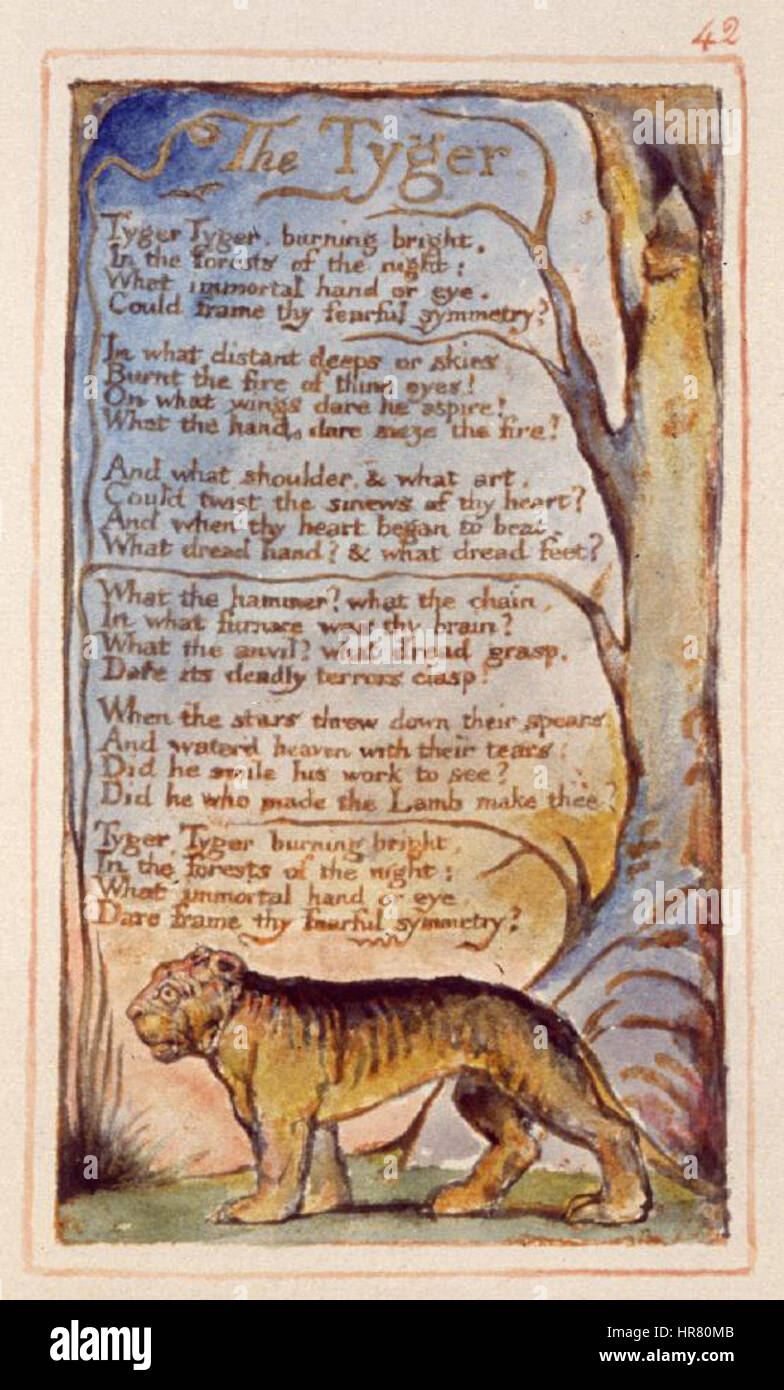 42
The Tyger.
Tyger Tyger, burning bright,
In the forests of the night:
What immortal hand or eye,
Could frame thy fearful symmetry?
In what distant deeps or skies
Burnt the fire of thine eyes!
On what wings dare he aspire!
What the hand, dare sieze the fire?
And what shoulder, & what art,
Could twist the sinews of thy heart?
And when thy heart began to beat,
What dread hand? & what dread feet?
What the hammer? what the chain,
In what furnace was thy brain?
What the anvil? what dread grasp,
Dare its deadly terrors clasp!
When the stars threw down their spears
And water'd heaven with their tears:
Did he smile his work to see?
Did he who made the Lamb make thee?
Tyger, Tyger burning bright,
In the forests of the night:
What immortal hand or eye,
Dare frame thy fearful symmetry?
a
alamy
alamy stock photo
HR80MB
www.alamy.com